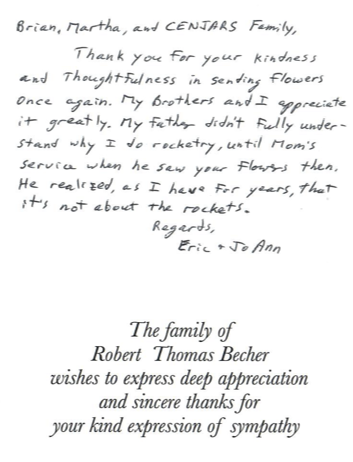 Brian, Martha, and CENJARS Family,
Thank you for your kindness
and Thoughtfulness in sending flowers
once again. My Brothers and I appreciate
it greatly. My father didn't fully under-
stand why I do rocketry, until Mom's
service when he saw your flowers then.
He realized, as I have for years, that
it's not about the rockets.
Regards,
Eric + JoAnn
The family of
Robert Thomas Becher
wishes to express deep appreciation
and sincere thanks for
your kind expression of sympathy